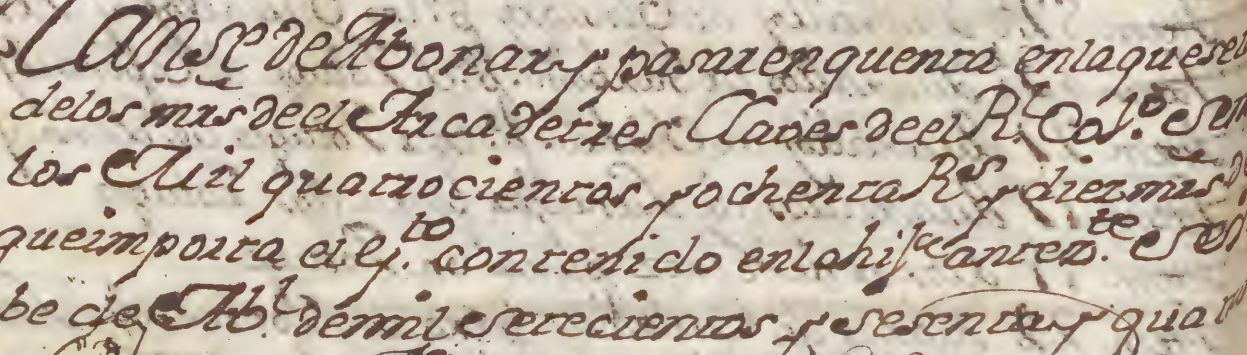 Hanse de Abonar y pasar en quenta en la que se
de los mrs de el Arca de tres Claves de el Rl. Colo. Sem
los Mil quatrocientos y ochenta Rs. y diez mrs
que importa el gto. contenido en la antezte.
be de Abl. de mil setecientos y sesenta y quat